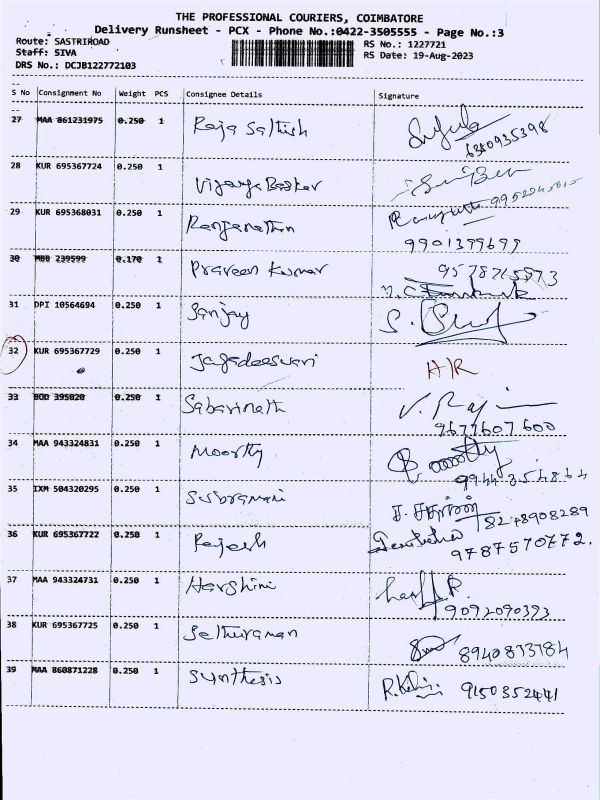 THE PROFESSIONAL COURIERS, COIMBATORE
Delivery Runsheet - PCX - Phone No.:0422-3505555 - Page No.:3
Route: SASTRIROAD
RS No.: 1227721
Staff: SIVA
RS Date: 19-Aug-2023
DRS No.: DCJB122772103
S No Consignment No Weight PCS Consignee Details Signature
27 MAA 861231975 0.250 1 Raja Sathish
6380935398
28 KUR 695367724 0.250 1 Vijaya Baskar
29 KUR 695368031 0.250 1 Ranjanathan
9901399699
30 MBB 239599 0.170 1 Praveen Kumar
31 DPI 10564694 0.250 1 Sanjay
32 KUR 695367729 0.250 1 Jagadeeswari A/R
33 BOD 395020 0.250 1 Sabarinath V. Raji
9677607600
34 MAA 943324831 0.250 1 Moorthy
35 IXM 504320295 0.250 1 Subramani
8248908289
36 KUR 695367722 0.250 1 Rajesh
9787570772.
37 MAA 943324731 0.250 1 Harshini
9092090393
38 KUR 695367725 0.250 1 Sethuraman
8940833184
39 MAA 860871228 0.250 1 Synthesis
9150352441